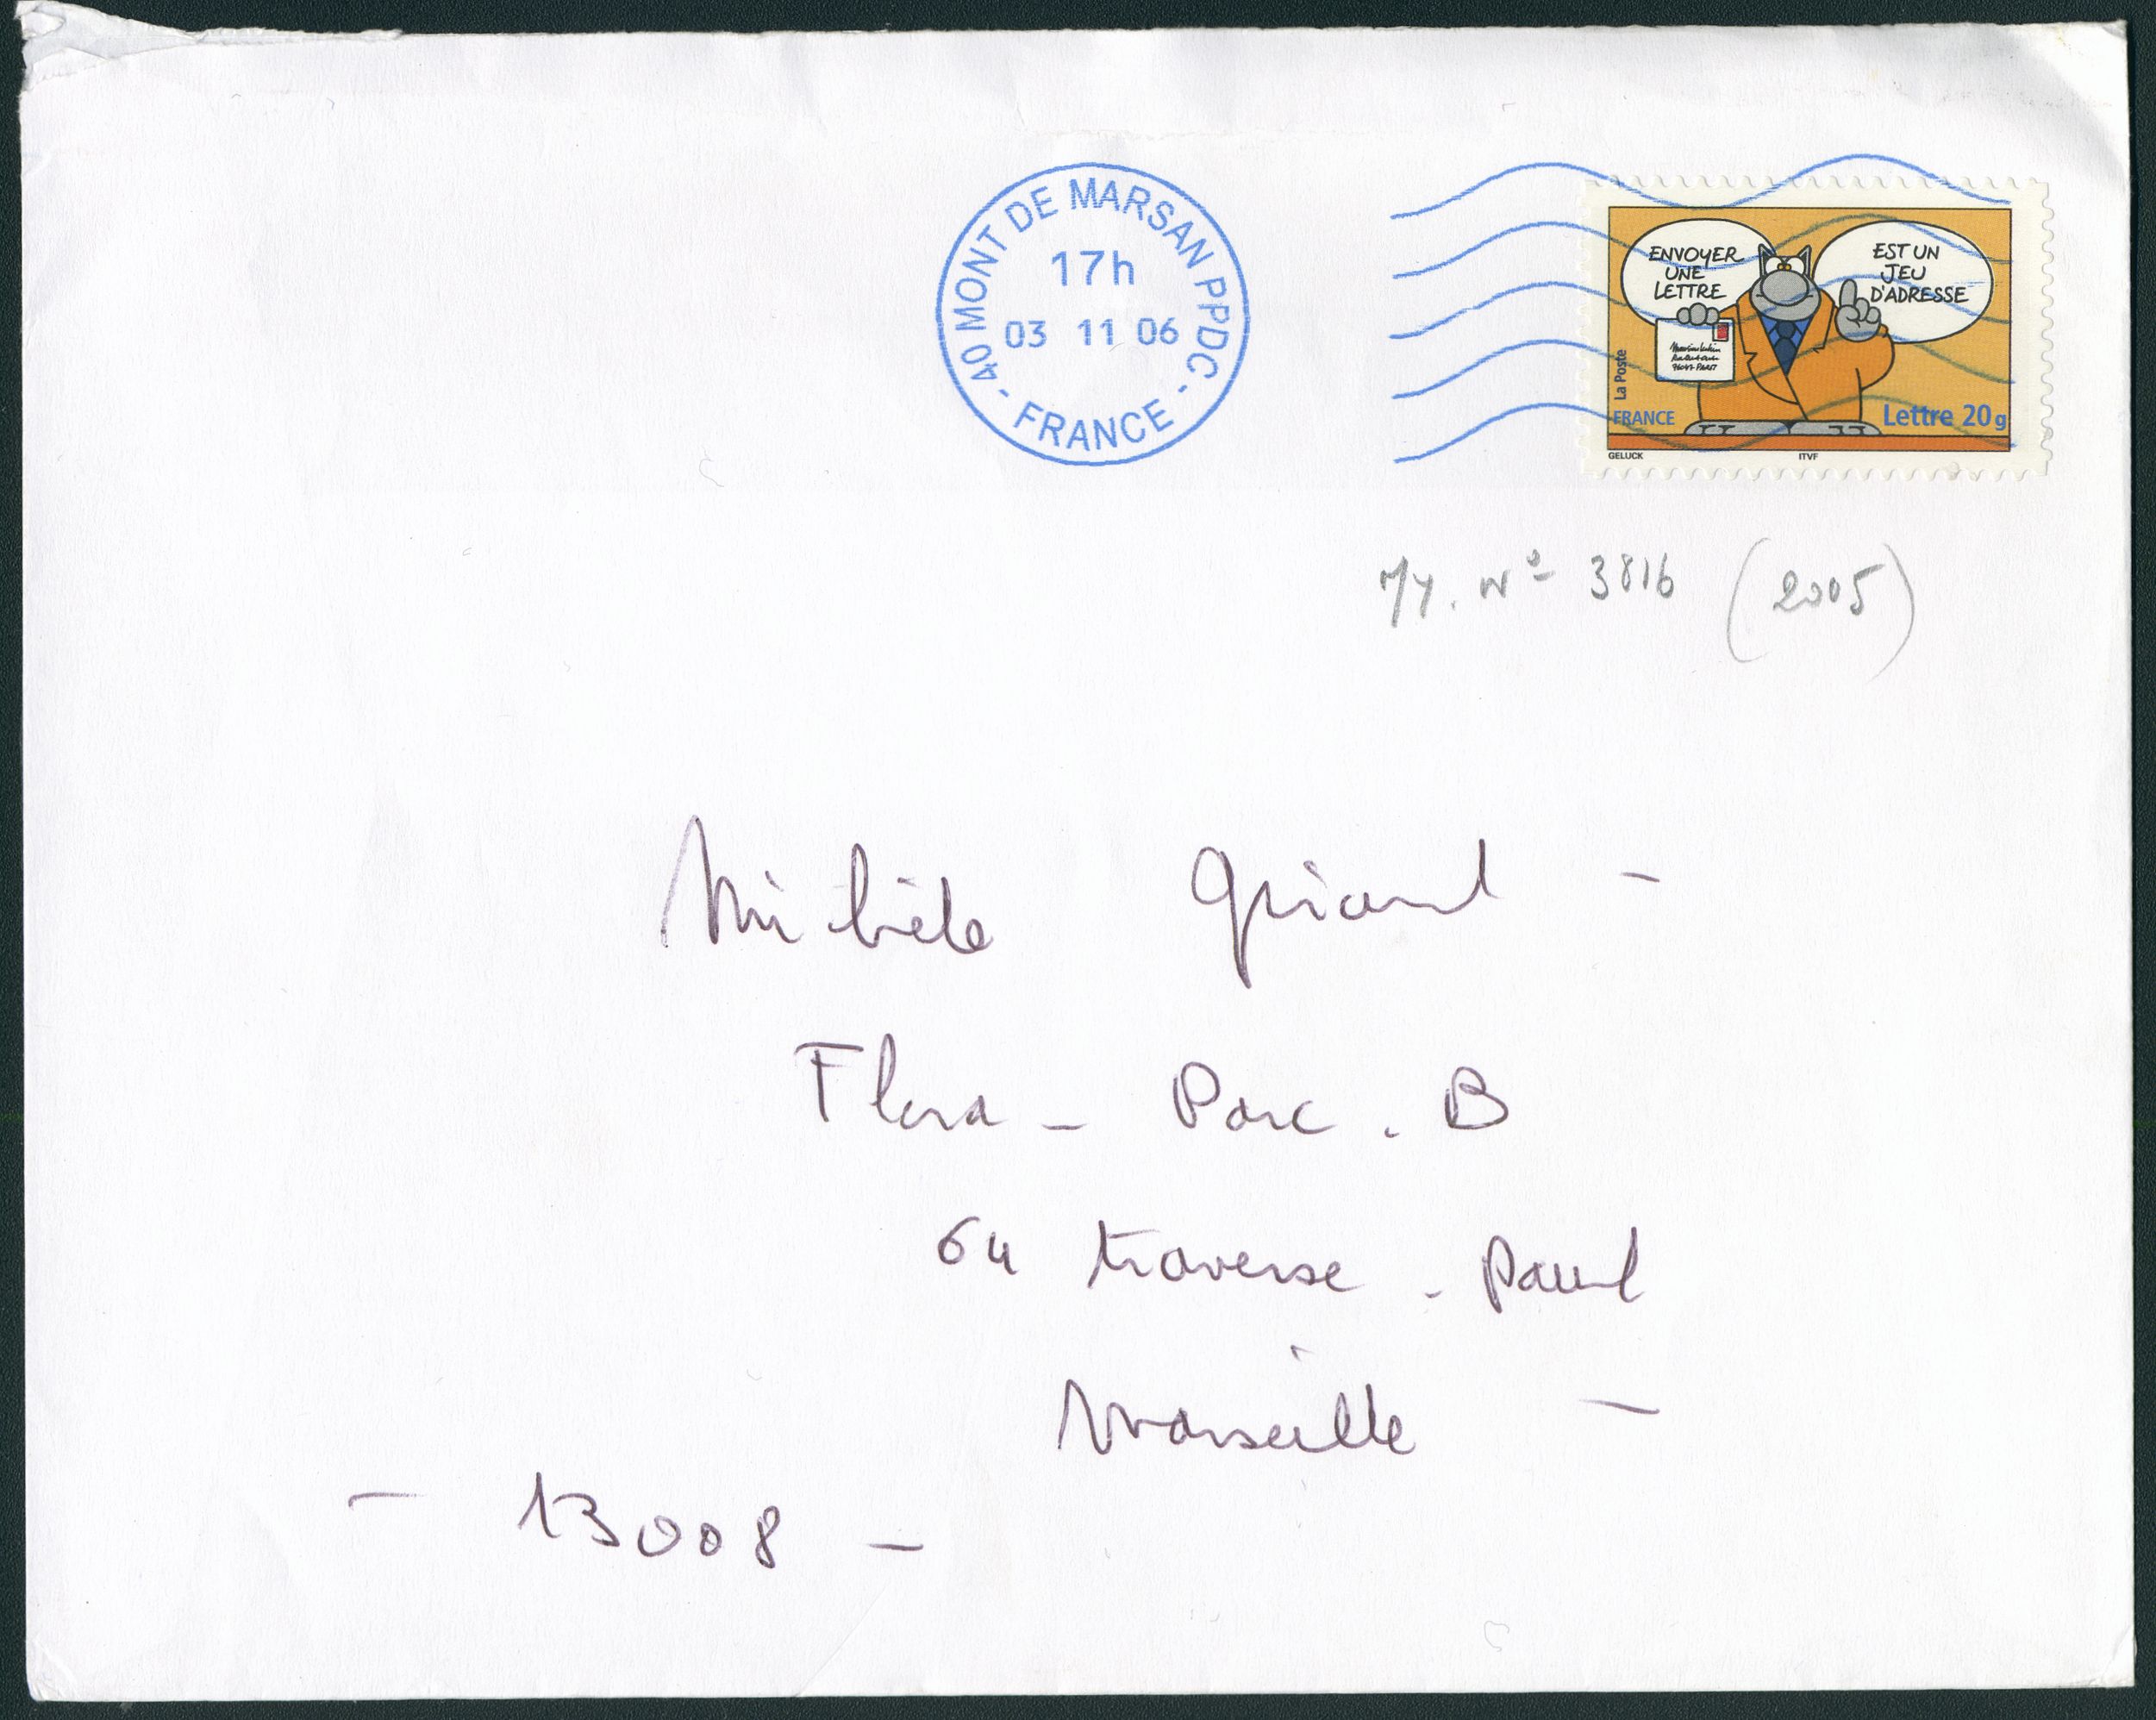 40 MONT DE MARSAN PPDC
17h
03 11 06
- FRANCE -
ENVOYER
UNE
LETTRE
EST UN
JEU
D'ADRESSE
La Poste
FRANCE
Lettre 20g
GELUCK
ITVF
Yv. N° 3816 (2005)
Michèle Girard -
Flora - Parc . B
64 traverse - Paul
Marseille -
- 13008 -